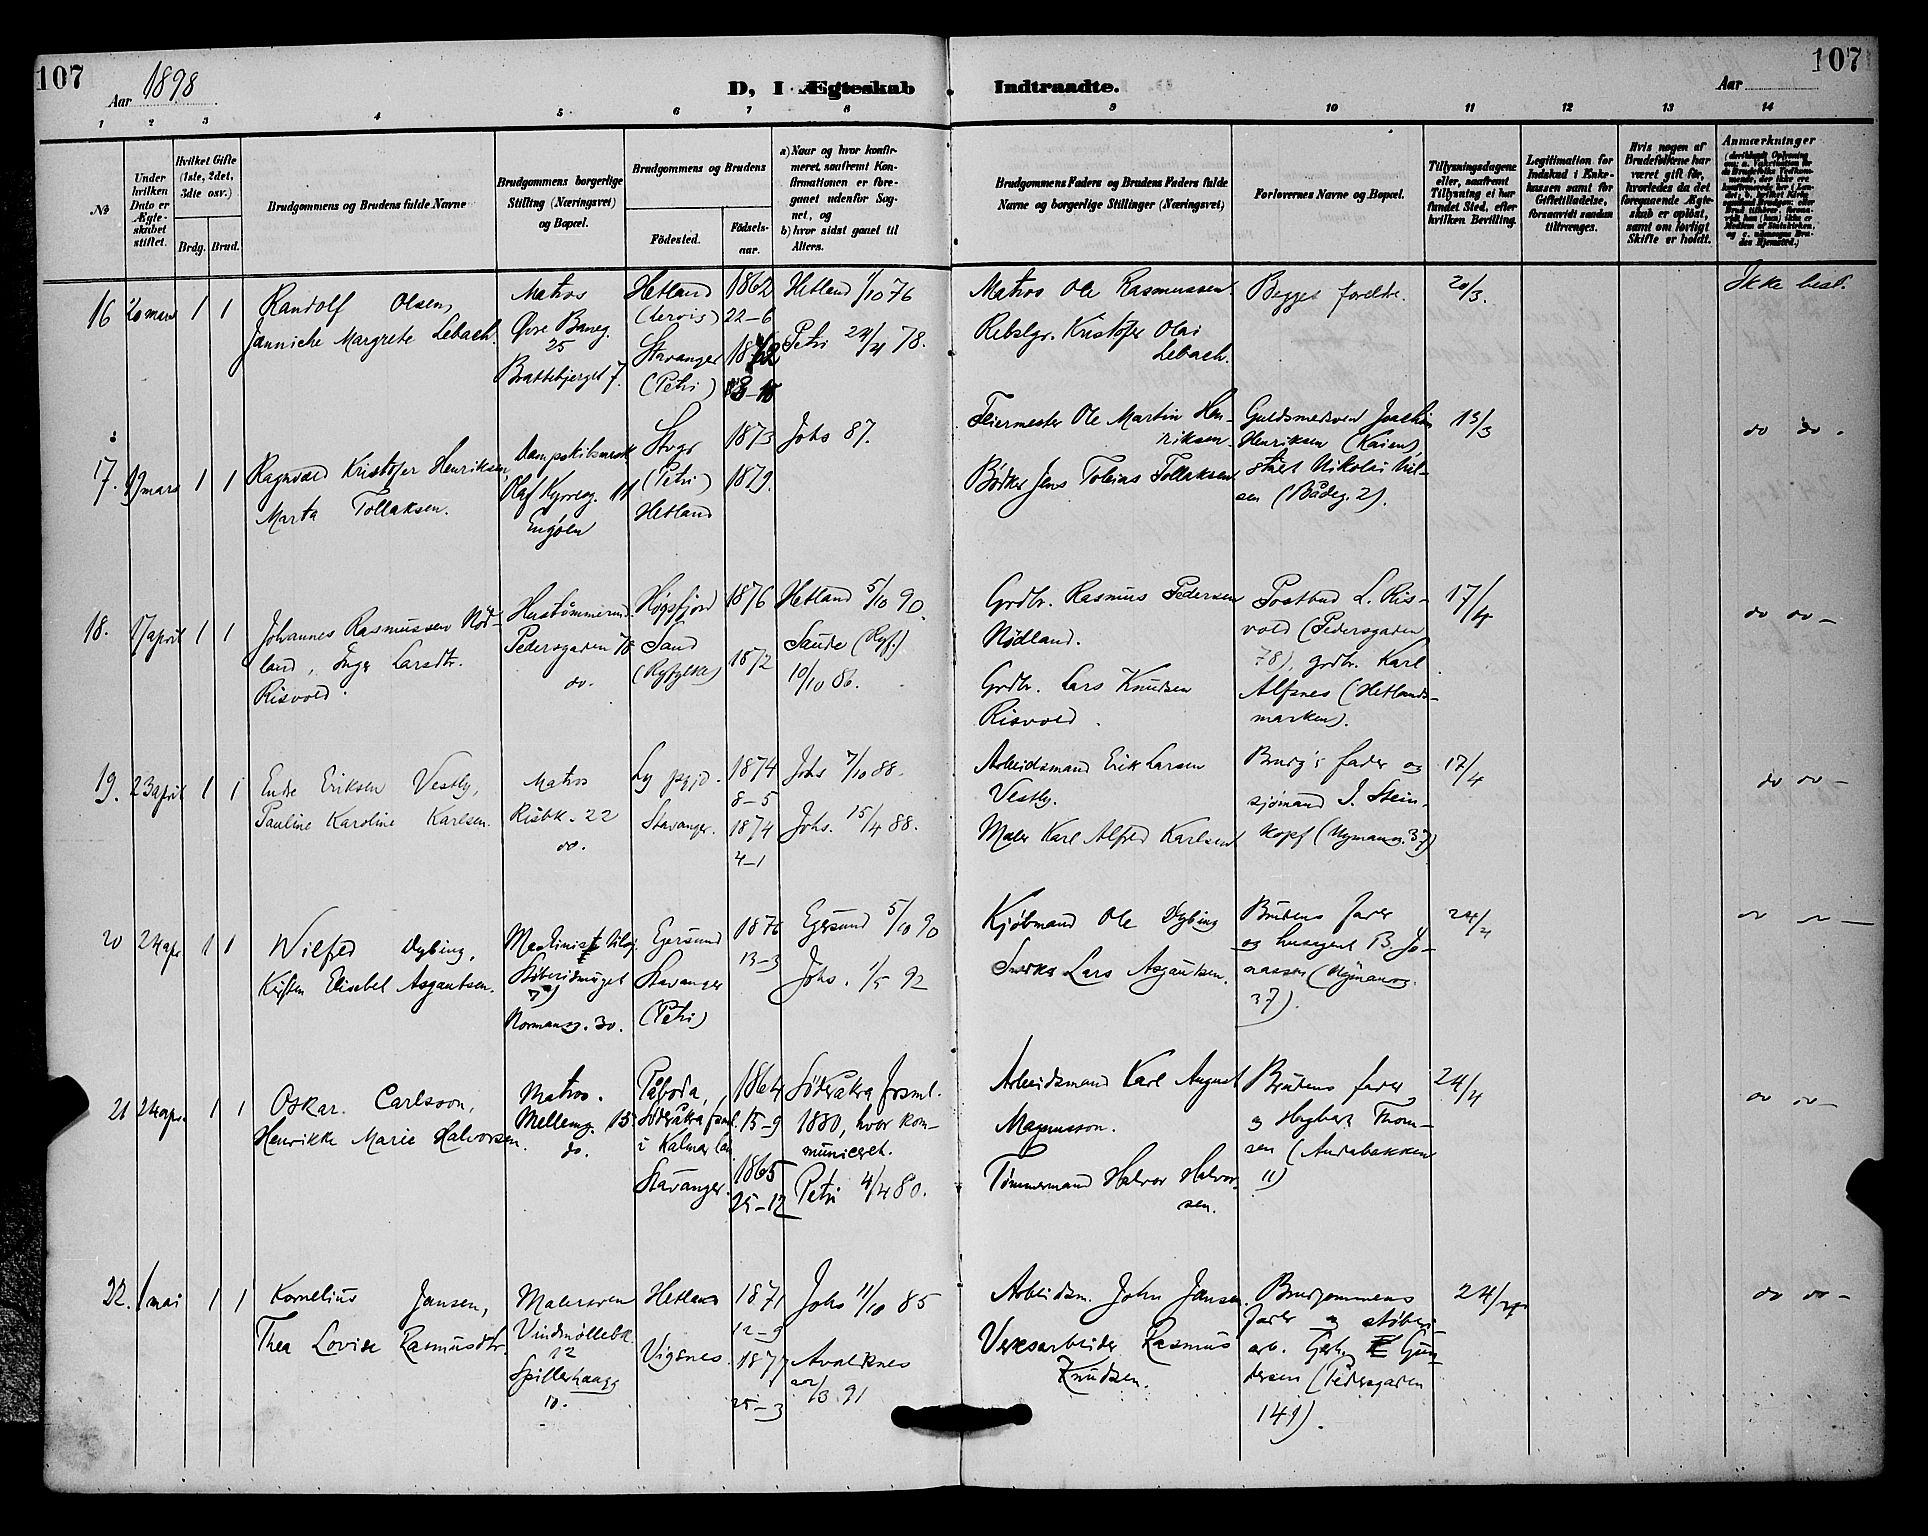 107
107
Aar 1898
D, I Ægteskab
Indtraadte.
Aar
1 2 3 4 5 6 7 8 9 10 11 12 13 14
№
Under hvilken Dato er Ægteskabet stiftet.
Hvilket Gifte (1ste, 2det, 3die osv.)
Brdg. Brud.
Brudgommens og Brudens fulde Navne
Brudgommens borgerlige Stilling (Næringsvei) og Bopæl.
Brudgommens og Brudens
Födested.
Födsels-aar.
a) Naar og hvor konfirmeret, saafremt Konfirmationen er foregaaet udenfor Sognet, og
b) hvor sidst gaaet til Alters.
Brudgommens Faders og Brudens Faders fulde Navne og borgerlige Stillinger (Næringsvei)
Forlovernes Navne og Bopæl.
Tillysningsdagene eller, saafremt Tillysning ei har fundet Sted, efter hvilken Bevilling.
Legitimation for Indskud i Enkekassen samt for Giftetilladelse, forsaavidt saadan tiltrænges.
Hvis nogen af Brudefolkene har været gift før, hvorledes da det foregaaende Ægteskab er opløst, samt om lovligt Skifte er holdt.
Anmærkninger
16 20 mars 1 1
Randolf Olsen,
Janniche Margrete Lebach.
Matros
Øvre Baneg.
25
Brattebjerget 7.
Hetland
Stavanger
(Petri)
1862
22-6
Hetland 1/10 76
Petri 24/4 78.
Matros Ole Rasmussen.
Rebslgr. Kristofer Olai
Lebach.
Begges forældre.
20/3.
Ikke besl.
17. mars 1 1
Ragnvald Kristofer Henriksen
Marta Tollaksen.
Olaf Kyrreg. 11
Engøen
Stvgr
(Petri)
Hetland
1873
1879.
Johs 87.
Feiermester Ole Martin Hen-
riksen.
Bødker Jens Tobias Tollaksen.
Guldsmedsvend Joachim
Henriksen (Kaien),
Nikolai Nil-
sen (Bådeg. 2).
13/3
do do.
18. 17 april 1 1
Johannes Rasmussen Nød-
land, Inger Larsdtr.
Risvold.
Hustømmermd.
Pedersgaden 78
do.
Høgsfjord
Sand
(Ryfylke)
1876
1872
Hetland 5/10 90.
Saude (Ryf.)
10/10 86.
Grdbr. Rasmus Pedersen
Nødland.
Grdbr. Lars Knudsen
Risvold.
Postbud L. Ris-
vold (Pedersgaden
78), grdbr. Karl
Alfsnes (Hetlands-
marken).
17/4
do do -
19. 23 april 1 1
Endre Eriksen Vestly,
Pauline Karoline Karlsen.
Matros
Risbk. 22
do.
Ly pgjd.
Stavanger.
1874
8-5
1874
4-1
Johs 7/10 88.
Johs. 15/4 88.
Arbeidsmand Erik Larsen
Vestly.
Maler Karl Alfred Karlsen
Brudg's fader og
sjömand J. Stein-
kopf (Nymansg. 37)
17/4
do do -
20 24 apr. 1 1
Wilfred Dybing,
Kirsten Elisabet Asgautsen.
Maskinist
Normansg. 30.
Egersund
Stavanger
(Petri)
1876
13-3
Egersund 5/10 90
Johs. 1/5 92
Kjøbmand Ole Dybing
Lars Asgautsen.
Brudens fader
og husagent B. Jo-
nassen (Nymansg.
37).
24/4
do do -
21 24 apr. 1 1
Oskar Carlsson,
Henrikke Marie Halvorsen.
Matros.
Mellemg. 15.
do.
Påboda,
Söderåkra fsml.
i Kalmar län
Stavanger.
1864
15-9
1865
25-12
Söderåkra forsml.
1880, hvor kom-
municeret.
Petri 4/4 80.
Arbeidsmand Karl August
Magnusson.
Tømmermand Halvor Halvor-
sen.
Brudens fader
og Thom-
sen (Andabakken
11)
24/4
do do -
22. 1 mai 1 1
Kornelius Jansen,
Thea Lovise Rasmusdtr.
Malersvend
Vindmøllebk.
12
Spilderhaugg
10.
Hetland
Vigsnes.
1871
12-9
1877
25-3
Johs 11/10 85
Avaldsnes
22/3 91
Arbeidsm. John Jansen.
Verksarbeider Rasmus
Knudsen.
Brudgommens
fader og støberi-
arb. Gun-
dersen (Pedersgaden
141).
24/4
do do -